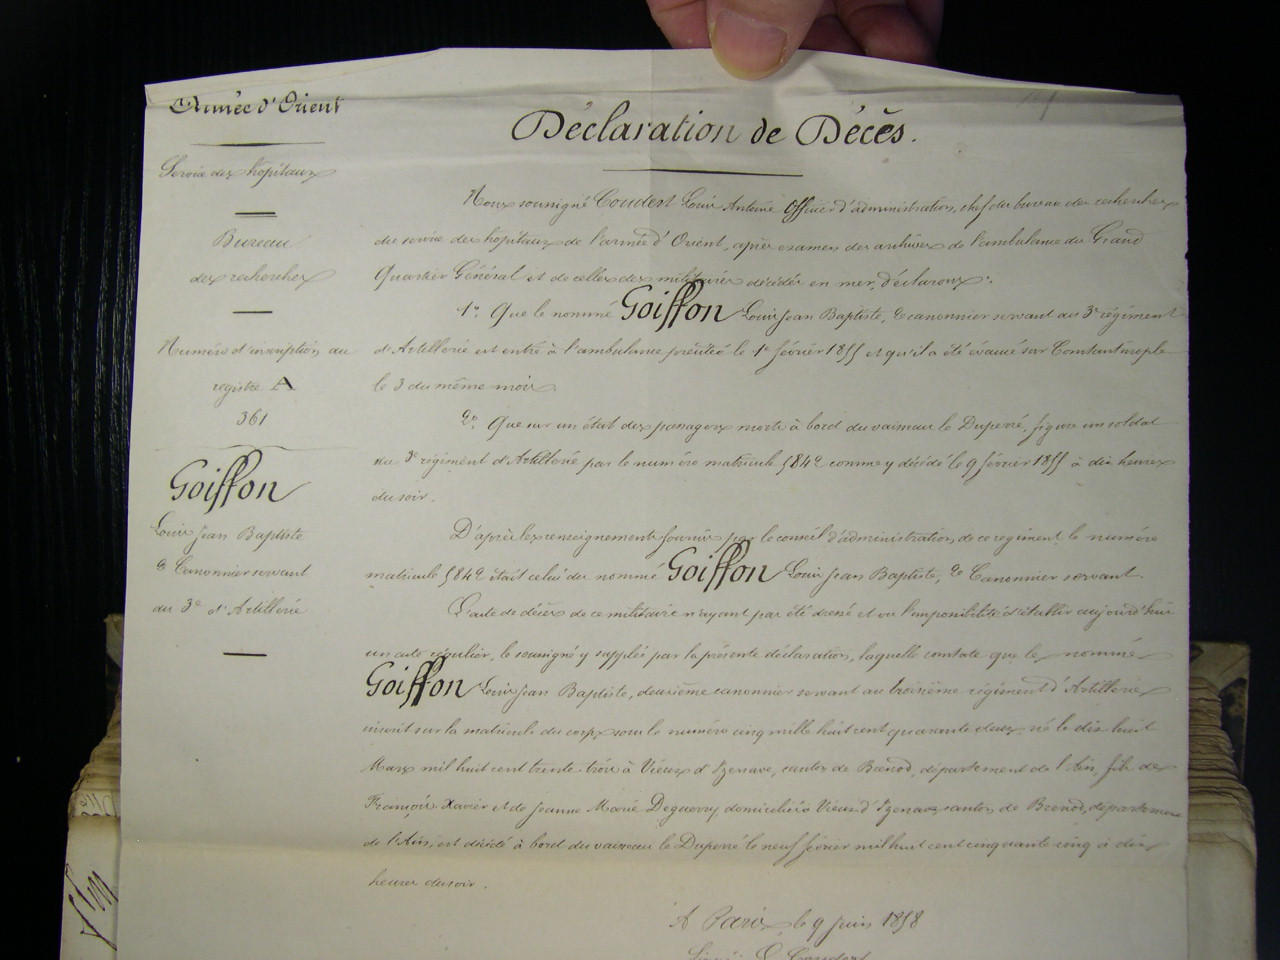 Armée d'Orient
Service des hôpitaux
Bureau
des recherches
Numéro d'inscription au
registre A
361
Goiffon
Louis Jean Baptiste
2e Canonnier servant
du 3e d'Artillerie
Déclaration de Décès.
Nous soussigné Coudert Louis Antoine Officier d'administration, chef du bureau des recherches
du service des hôpitaux de l'armée d'Orient, après examen des archives de l'ambulance du Grand
Quartier Général et de celles des militaires décédés en mer, déclarons :
1o Que le nommé Goiffon Louis Jean Baptiste, 2e canonnier servant au 3e régiment
d'Artillerie est entré à l'ambulance précitée le 1er février 1855 et qu'il a été évacué sur Constantinople
le 3 du même mois.
2o Que sur un état des passagers morts à bord du vaisseau le Duperré, figure un soldat
du 3e régiment d'Artillerie par le numéro matricule 5842 comme y décédé le 9 février 1855 à dix heures
du soir.
D'après les renseignements fournis par le conseil d'administration de ce régiment le numéro
matricule 5842 était celui du nommé Goiffon Louis Jean Baptiste, 2e Canonnier servant.
L'acte de décès de ce militaire n'ayant pas été dressé et vu l'impossibilité d'établir aujourd'hui
un acte régulier, le soussigné y supplée par la présente déclaration, laquelle constate que le nommé
Goiffon Louis Jean Baptiste, deuxième canonnier servant au troisième régiment d'Artillerie
inscrit sur la matricule du corps sous le numéro cinq mille huit cent quarante deux, né le dix huit
Mars mil huit cent trente trois à Vieux d'Izenave, canton de Brénod, département de l'Ain, fils de
François Xavier et de Jeanne Marie Deguerry, domiciliés à Vieux d'Izenave canton de Brenod, département
de l'Ain, est décédé à bord du vaisseau le Duperré le neuf février mil huit cent cinquante cinq à dix
heures du soir.
A Paris, le 9 Juin 1858
Signé: Coudert